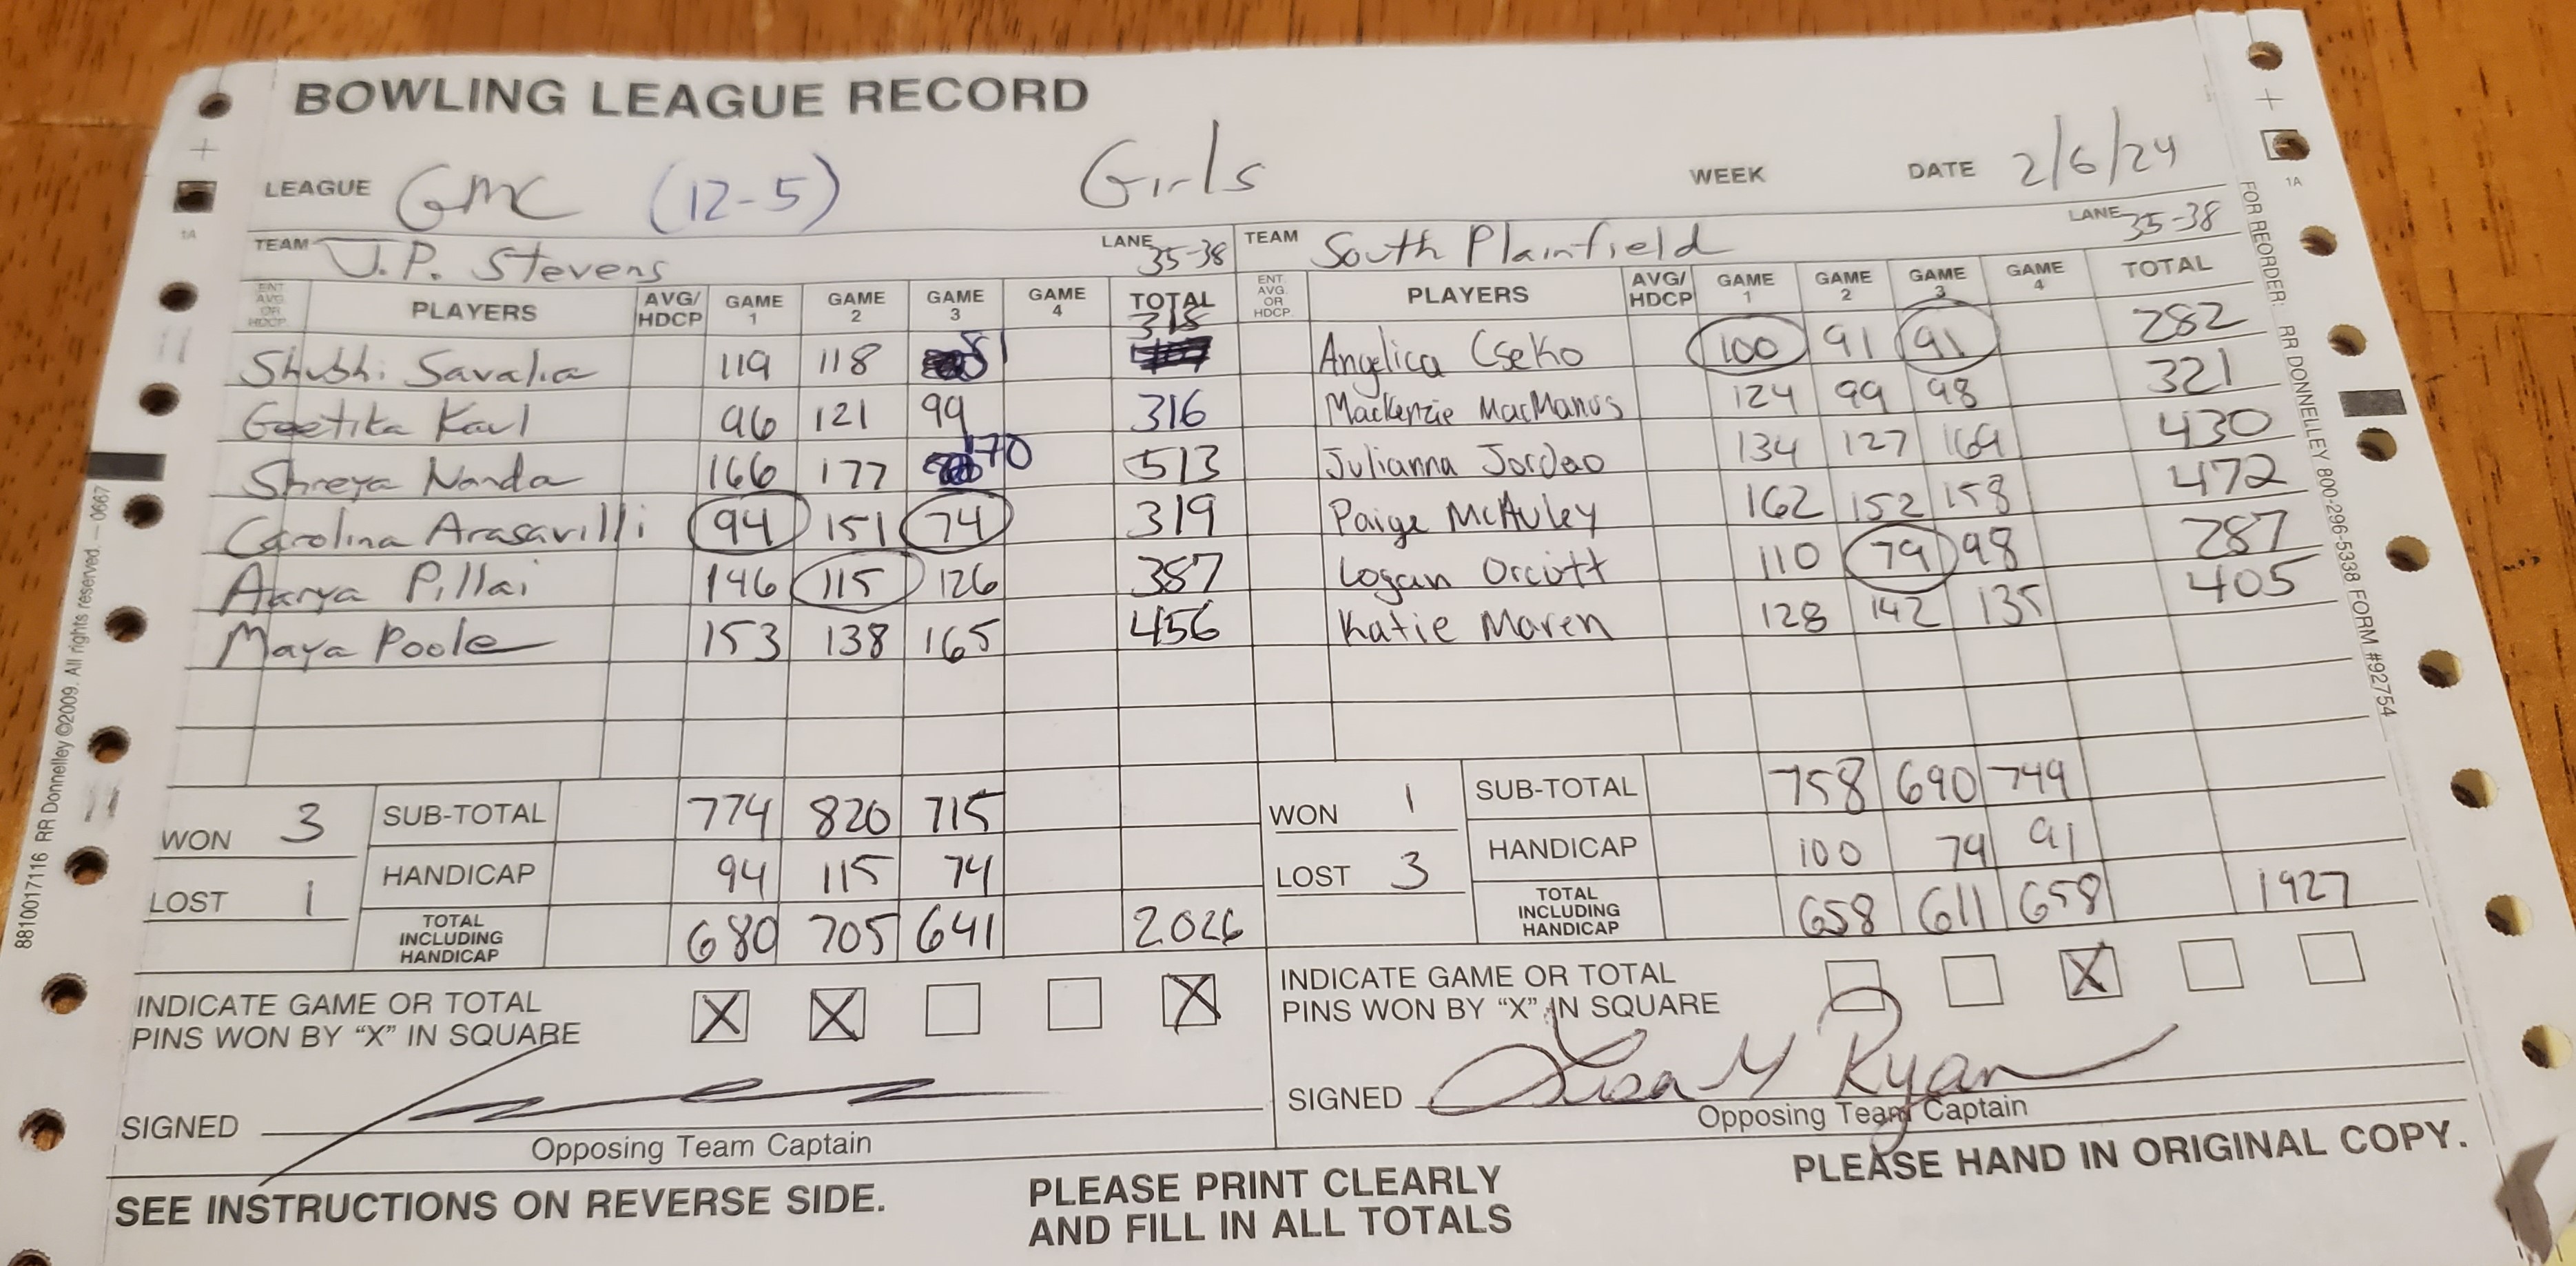 BOWLING LEAGUE RECORD
LEAGUE GMC (12-5) Girls WEEK DATE 2/6/24
TEAM J.P. Stevens LANE 35-38 TEAM South Plainfield LANE 35-38
ENT. AVG. OR HDCP. PLAYERS AVG/HDCP GAME 1 GAME 2 GAME 3 GAME 4 TOTAL ENT. AVG. OR HDCP. PLAYERS AVG/HDCP GAME 1 GAME 2 GAME 3 GAME 4 TOTAL
Shubhi Savalia 119 118 81 318 Angelica Cseko 100 91 91 282
Geetika Kaul 96 121 99 316 Mackenzie MacManus 124 99 98 321
Shreya Nanda 166 177 170 513 Julianna Jordao 134 127 169 430
Carolina Arasavilli 94 151 74 319 Paige McAuley 162 152 158 472
Aarya Pillai 146 115 126 387 Logan Orcutt 110 79 98 287
Maya Poole 153 138 165 456 Katie Maren 128 142 135 405
WON 3 SUB-TOTAL 774 820 715 WON 1 SUB-TOTAL 758 690 749
LOST 1 HANDICAP 94 115 74 LOST 3 HANDICAP 100 79 91
TOTAL INCLUDING HANDICAP 680 705 641 2026 TOTAL INCLUDING HANDICAP 658 611 658 1927
INDICATE GAME OR TOTAL PINS WON BY “X” IN SQUARE X X X INDICATE GAME OR TOTAL PINS WON BY “X” IN SQUARE X
SIGNED SIGNED Lisa M Ryan
Opposing Team Captain Opposing Team Captain
SEE INSTRUCTIONS ON REVERSE SIDE. PLEASE PRINT CLEARLY AND FILL IN ALL TOTALS PLEASE HAND IN ORIGINAL COPY.
8810017116 RR Donnelley ©2009. All rights reserved. — 0667
FOR REORDER: RR DONNELLEY 800-296-5338 FORM #92754
1A
1A